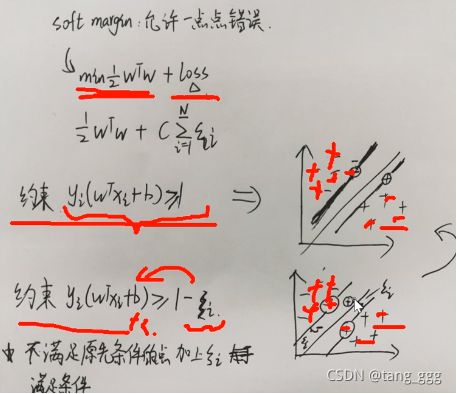 soft margin: 允许一点点错误.
min ½ wᵀw + loss
½ wᵀw + C Σᵢ₌₁ᴺ ξᵢ
约束 yᵢ(wᵀxᵢ+b)≥1 ⇒
约束 yᵢ(wᵀxᵢ+b)≥ 1-ξᵢ
ξᵢ
不满足原先条件的点 加上 ξᵢ
满足条件
CSDN @tang_ggg